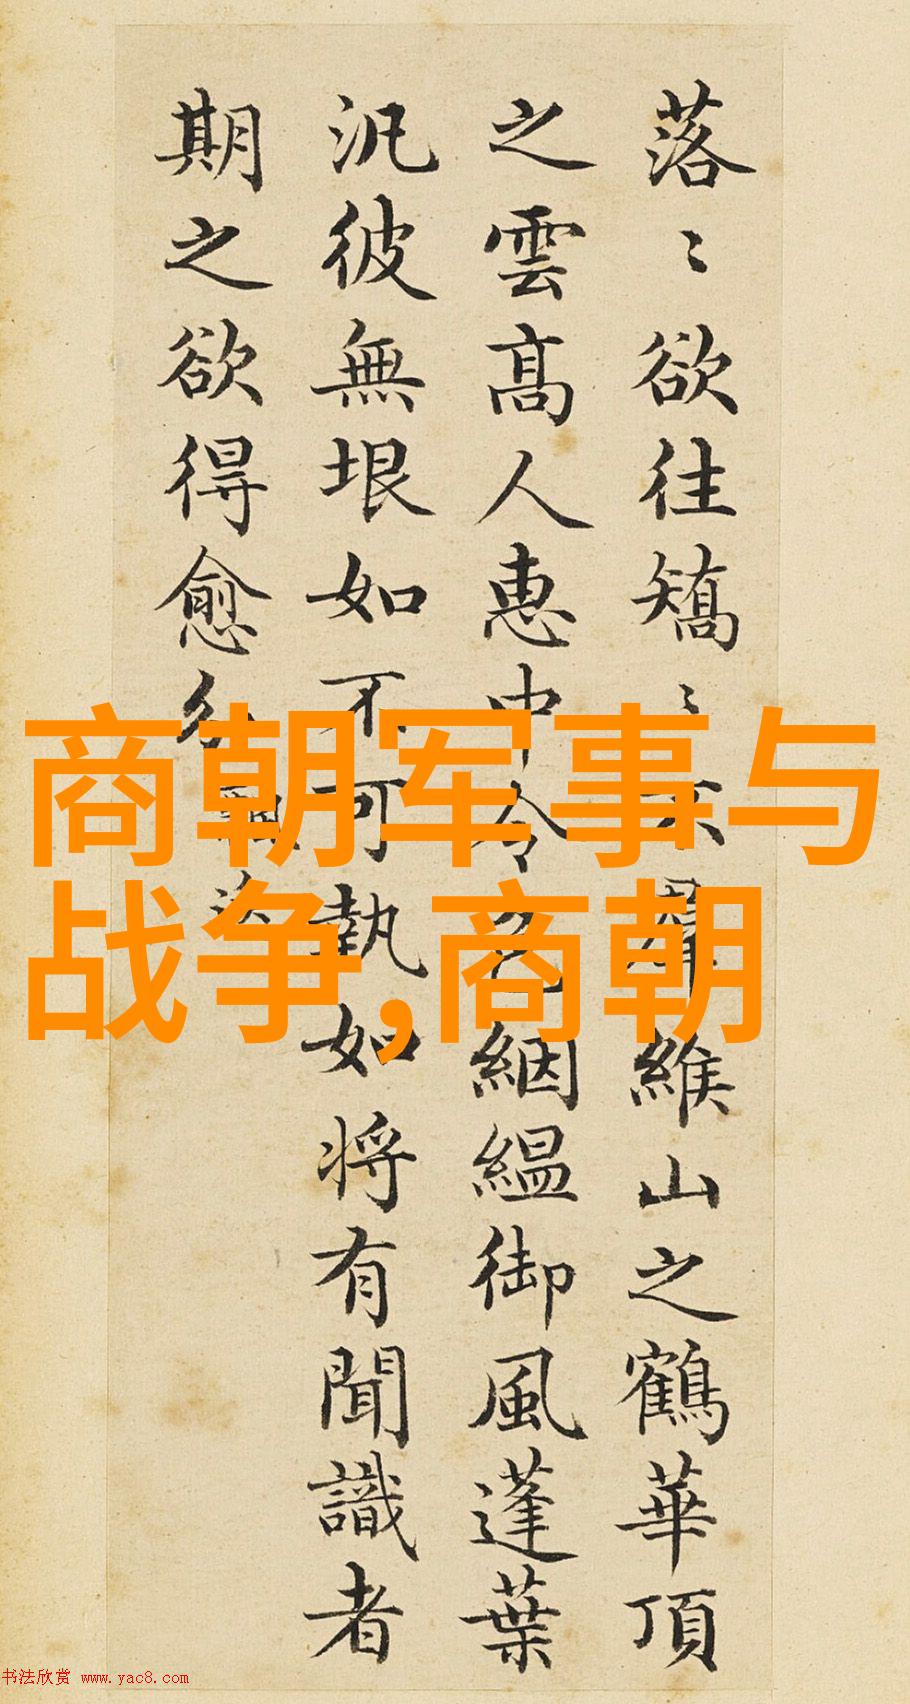 商朝军事与
战争,商朝
落〻欲往矯〻不羣緱山之鶴華頂
之雲髙人惠中令色絪緼御風蓬葉
汎彼無垠如不可執如将有聞識者
期之欲得愈分
书法欣赏 www.yac8.com